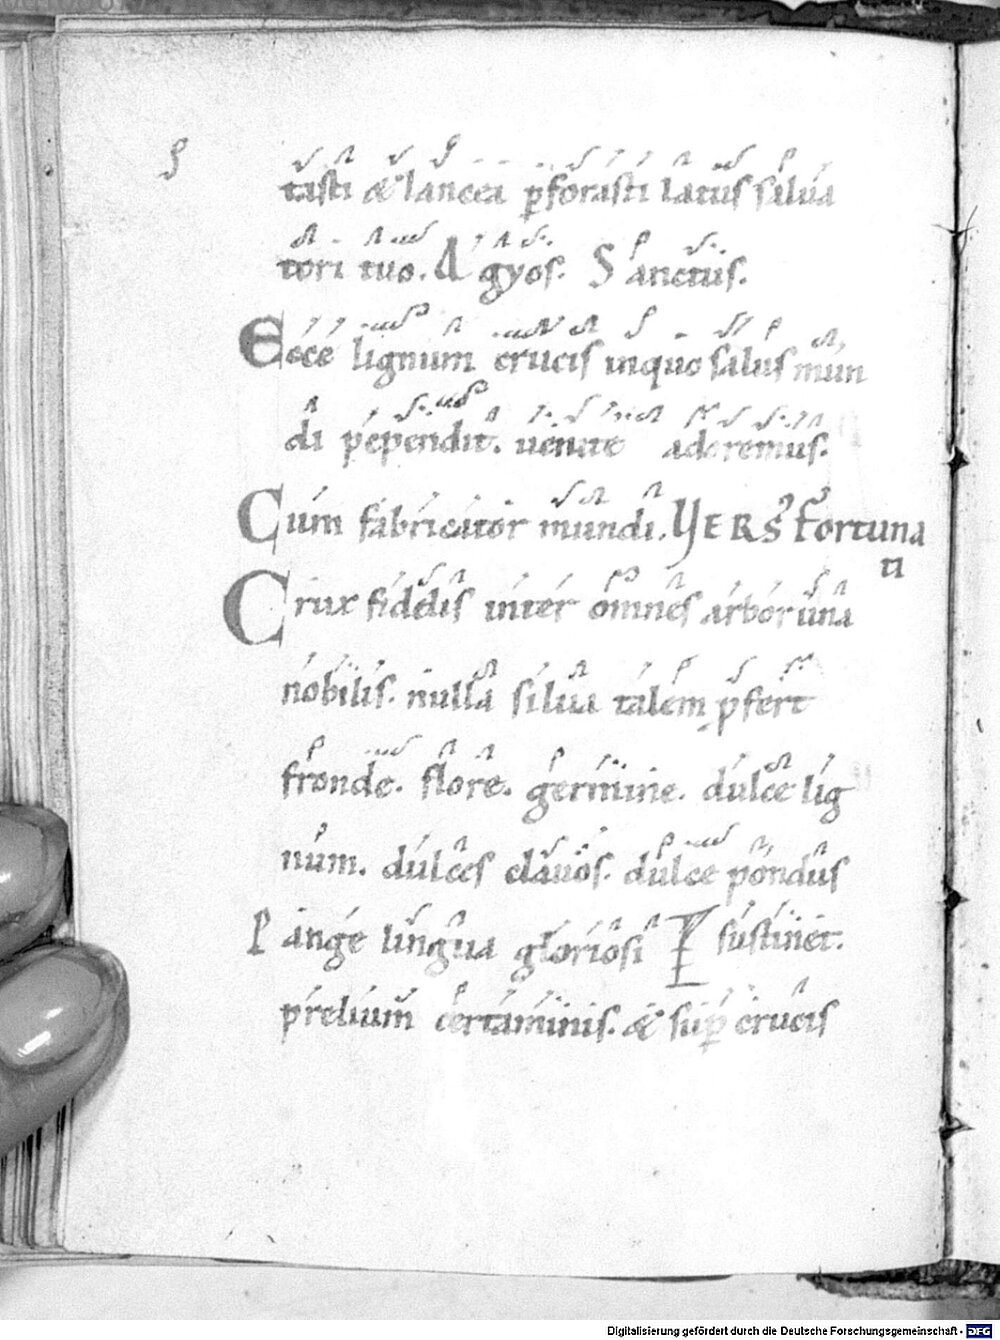 tasti & lancea ꝑforasti latus salua
tori tuo. Agyos. Sanctus.
Ecce lignum crucis inquo salus mun
di pependit. uenite adoremus.
Cum fabricator mundi. VERS fortuna
ti
Crux fidelis inter omnes arbor una
nobilis. nulla silua talem ꝓfert
fronde. flore. germine. dulce lig
num. dulces clauos. dulce pondus
Pange lingua gloriosi sustinet.
prelium certaminis. & suꝑ crucis
Digitalisierung gefördert durch die Deutsche Forschungsgemeinschaft - DFG